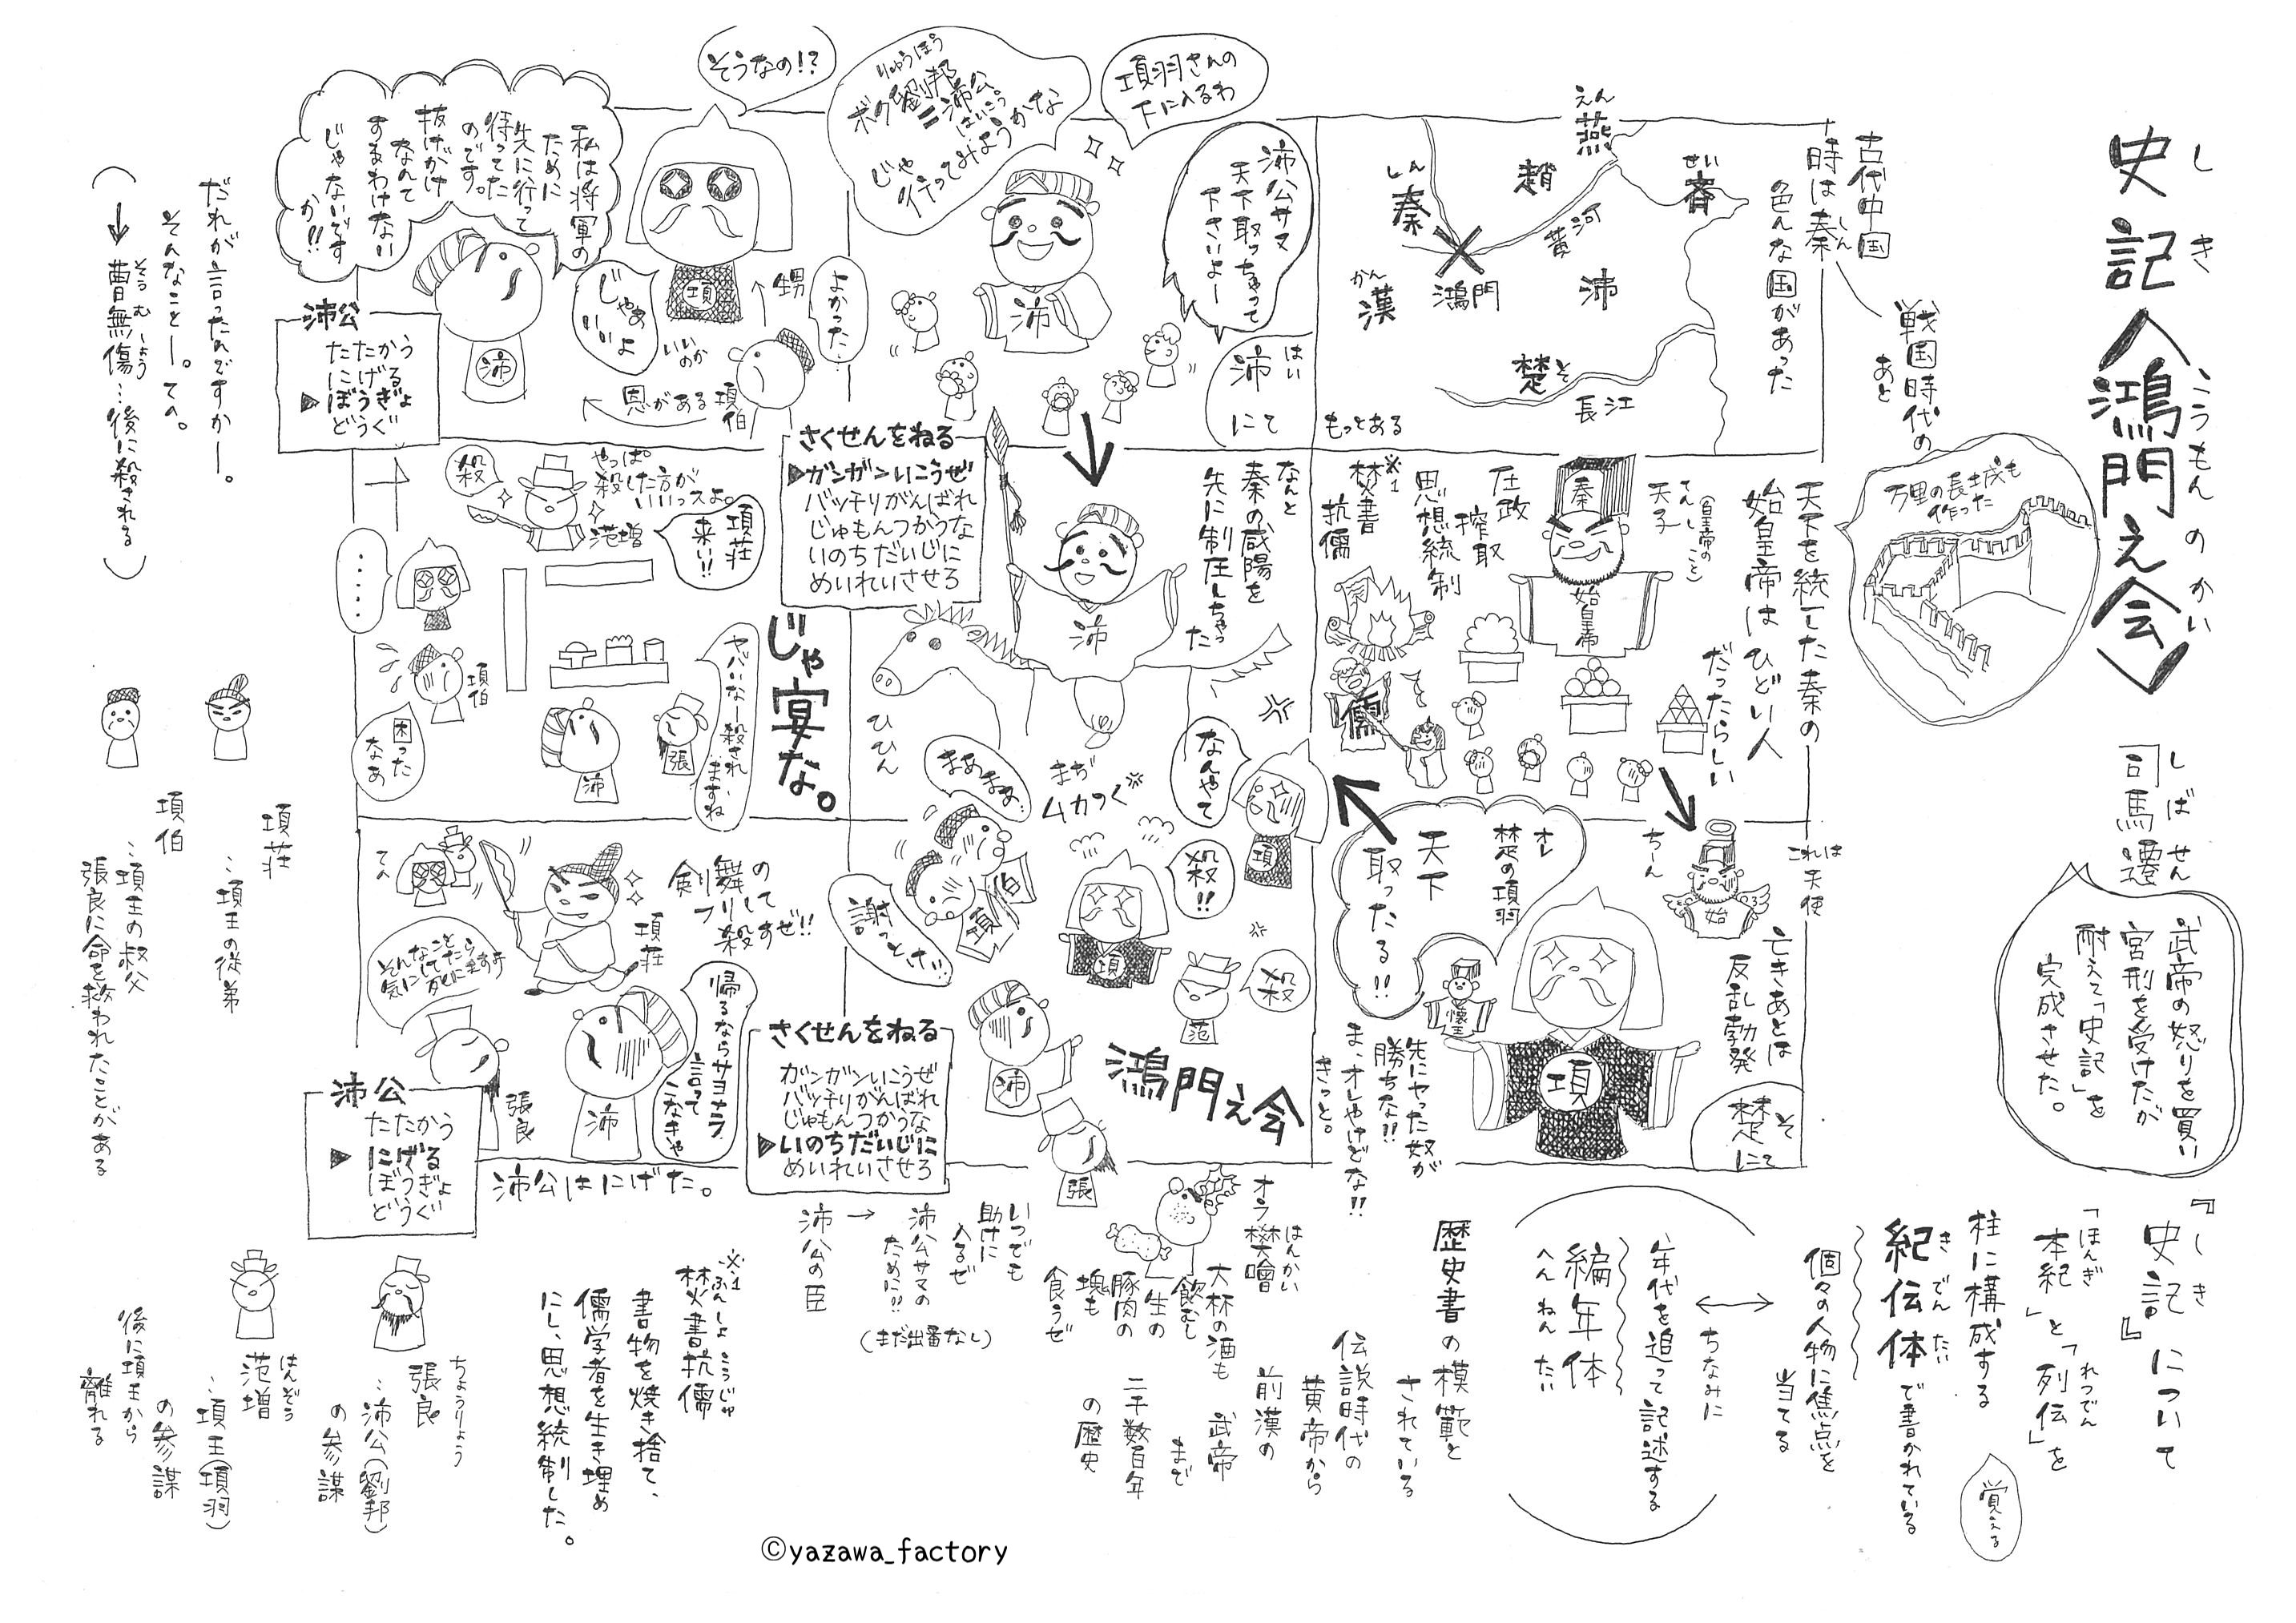 史記〈鴻門え会〉
しき
こうもんのかい
司馬遷
しばせん
武帝の怒りを買い
宮刑を受けたが
耐えて「史記」を
完成させた。
『史記』について
しき
「本紀」と「列伝」を
ほんぎ
れつでん
柱に構成する
紀伝体で書かれている
きでんたい
覚える
個々の人物に焦点を
当てる
ちなみに
年代を追って記述する
編年体
へんねんたい
歴史書の模範と
されている
伝説時代の
黄帝から
前漢の
武帝
まで
二千数百年
の歴史
古代中国
時は秦
しん
戦国時代の
あと
色んな国があった
えん
燕
趙
せい
斉
しん
秦
黄河
鴻門
沛
かん
漢
楚
そ
長江
もっとある
万里の長城も
作った
天下を統一した秦の
始皇帝はひどい人
だったらしい
天子
てんし
(皇帝のこと)
秦
始皇帝
圧政
搾取
思想統制
※1
焚書
抗儒
儒
ちーん
始
これは天使
亡きあとは
反乱勃発
楚にて
そ
オレ
楚の項羽
天下
取ったる!!
項
懐王
先にヤった奴が
勝ちな!!
ま、オレやけどな!!
きっと。
沛にて
はい
沛公サマ
天下取っちゃって
下さいよー
項羽さんの
下に入るわ
ボク劉邦
りゅうほう
=沛公。
はいこう
じゃ
行ってみようかな
沛
なんと
秦の咸陽を
先に制圧しちゃった
沛
ひひん
さくせんをねる
▶ガンガンいこうぜ
バッチリがんばれ
じゅもんつかうな
いのちだいじに
めいれいさせろ
なんやて
項
まぢ
ムカつく
まあまあ…
殺!!
項
殺
范
謝っとけ!!
項
伯
沛
張
鴻門え会
さくせんをねる
ガンガンいこうぜ
バッチリがんばれ
じゅもんつかうな
▶いのちだいじに
めいれいさせろ
そうなの!?
私は将軍の
ために
先に行って
待ってた
のです。
抜けがけ
なんて
するわけない
じゃないです
か!!
項
じゃあ
いいよ
いいのか
甥
よかった…
恩がある
項伯
沛
沛公
たたかう
にげる
▶ぼうぎょ
どうぐ
だれが言ったんですかー。
そんなことー。てへ。
(→曹無傷…後に殺される)
そうむしょう
じゃ宴な。
やっぱ。
殺した方が
いいっスよ。
殺
范増
項荘
来い!!
……
項伯
困った
なあ
沛
張
ヤバいなー殺され
ますね
剣舞の
フリして
殺すぜ!!
項荘
てへ
そんなこと
気にしてたら
死にますよ
帰るならサヨナラ
言って
こなきゃ
沛
張良
沛公
たたかう
▶にげる
ぼうぎょ
どうぐ
沛公はにげた。
オラ
樊噲
はんかい
大杯の酒も
飲むし
生の
豚肉の
塊も
食うぜ
いつでも
助けに
入るぜ
沛公サマの
ために!!
(まだ出番なし)
→沛公の臣
※1
焚書抗儒
ふんしょこうじゅ
書物を焼き捨て、
儒学者を生き埋め
にし、思想統制した。
項荘
…項王の従弟
項伯
…項王の叔父
張良に命を救われたことがある
張良
ちょうりょう
…沛公(劉邦)
の参謀
范増
はんぞう
…項王(項羽)
の参謀
後に項王から
離れる
©yazawa_factory